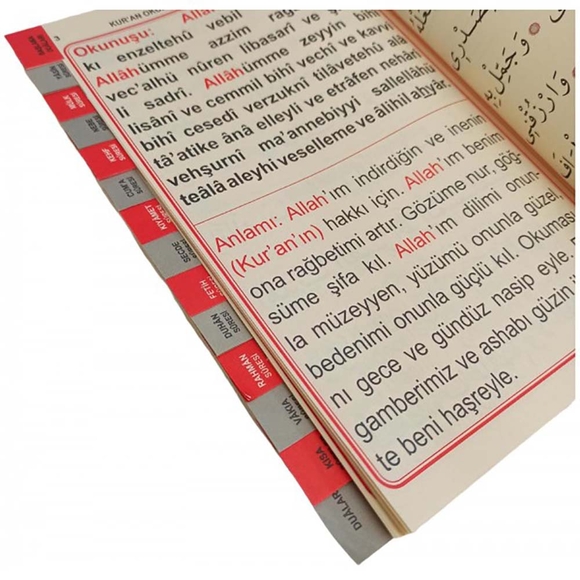 KUR'AN OKU
Okunuşu: Allah
kı enzeltehû vebil
Allâhümme azzim rağ
vec'alhü nûren libasarî ve ş
lî sadrî. Allâhümme zeyyin
lisânî ve cemmil bihî vechî ve kavvi
bihî cesedî verzuknî tilâvetehû alâ
tâ'atike ânâ elleyli ve etrâfen nehâri
vehşurnî ma'annebiyyi sallellâhü
teâlâ aleyhi veselleme ve âlihil ahyâr.
Anlamı: Allah'ım indirdiğin ve inenin
(Kur'an'ın) hakkı için. Allah'ım benim
ona rağbetimi artır. Gözüme nur, göğ-
süme şifa kıl. Allah'ım dilimi onun-
la müzeyyen, yüzümü onunla güzel,
bedenimi onunla güçlü kıl. Okuması-
nı gece ve gündüz nasip eyle.
gamberimiz ve ashabı güzin
te beni haşreyle.
KEHF
SÛRESİ
CUM'A
SÛRESİ
KIYÂMET
SECDE
FETİH
DUHÂN
SÛRESİ
RAHMÂN
SÛRESİ
VÂKIA
KISA
DUÂLAR